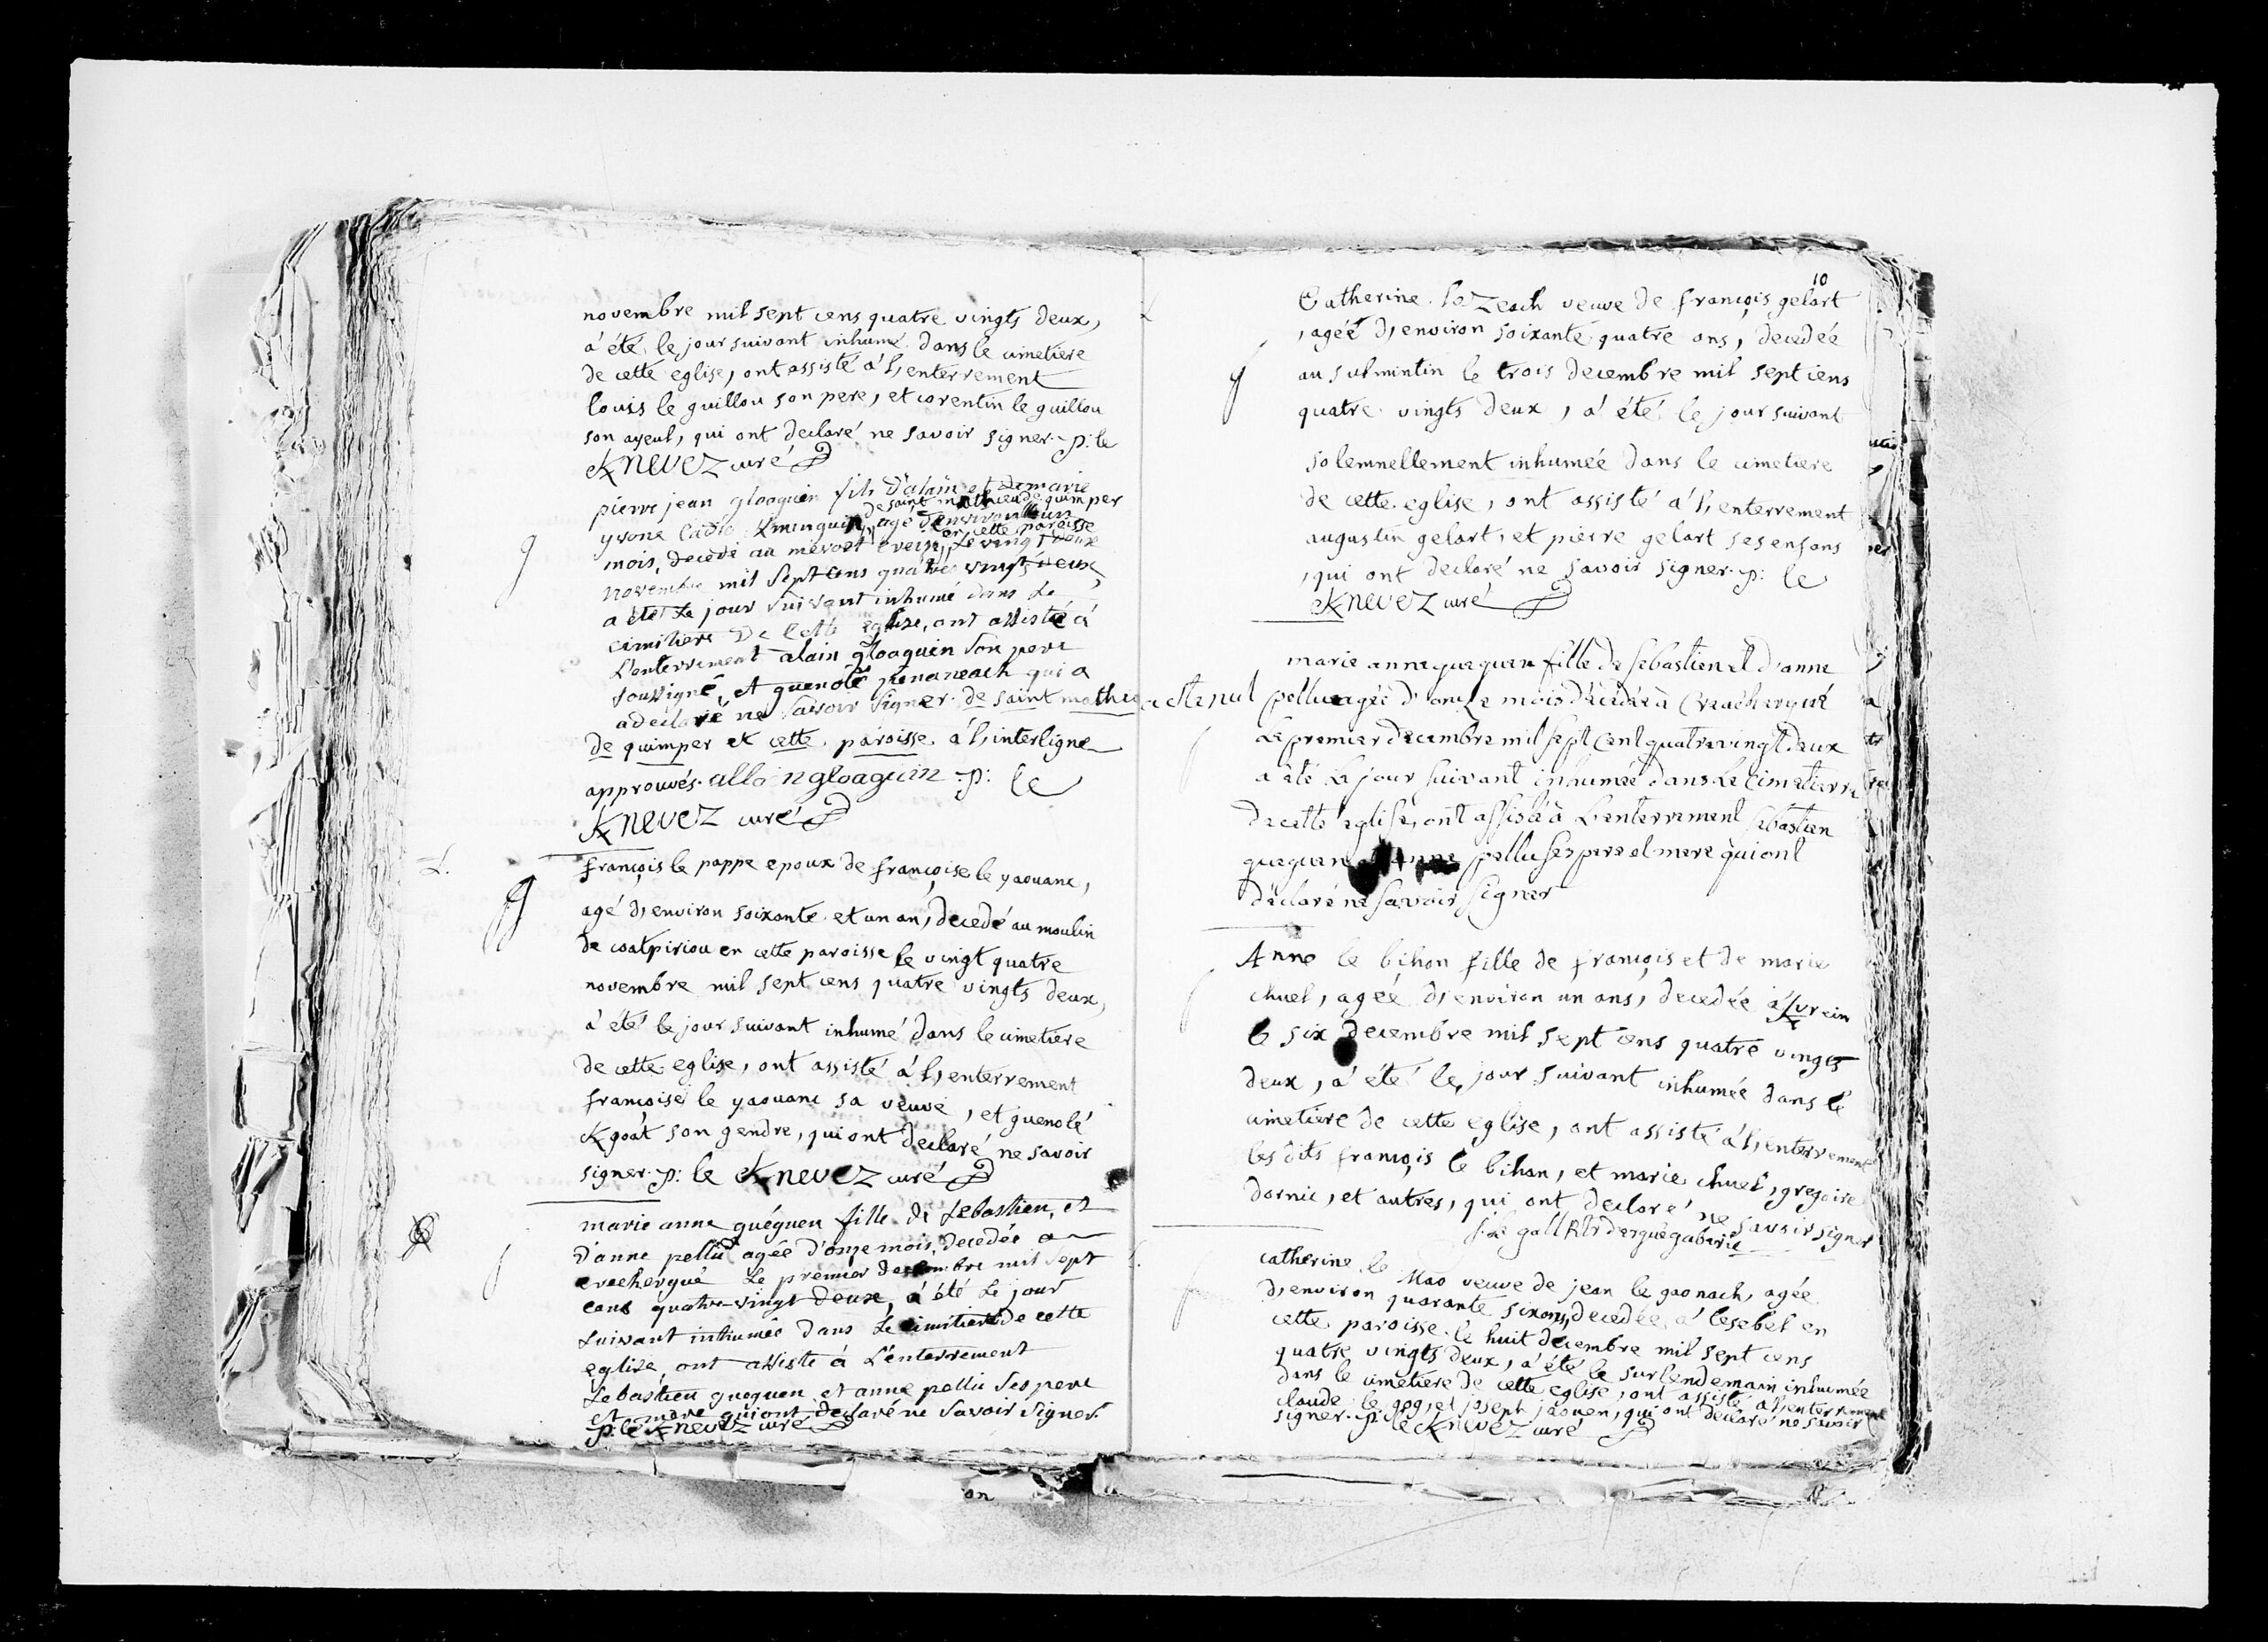 novembre mil sept cens quatre vingts deux,
a été le jour suivant inhumé dans le cimetiere
de cette eglise, ont assisté a l'enterrement
louis le guillou son pere, et corentin le guillou
son ayeul, qui ont declaré ne savoir signer. p: le
Knevez curé
pierre jean gloaguen fils d'alain et de marie
de saint mathieu de quimper
yvone agé d'environ un
en cette paroisse
mois, decedé au le vingt deux
novembre mil sept cens quatre vingt deux,
a été le jour suivant inhumé dans le
cimitiere de cette eglise, ont assisté à
L'enterrement alain gloaguen son pere
soussigné, et guenolé penaneach qui a
a declaré ne savoir signer. de saint mathieu
de quimper et cette paroisse a l'interligne
approuvés. allain gloaguin p: le
Knevez curé
L.
françois le pappe epoux de françoise le yaouanc,
agé d'environ soixante et un an, decedé au moulin
de coatpiriou en cette paroisse le vingt quatre
novembre mil sept cens quatre vingts deux,
a été le jour suivant inhumé dans le cimetiere
de cette eglise, ont assisté a l'enterrement
françoise le yaouanc sa veuve, et guenolé
Kgoat son gendre, qui ont declaré ne savoir
signer. p: le Knevez curé
marie anne guéguen fille de Sebastien, et
D'anne pelliu agée d'onze mois, decedée a
creachergué Le premier decembre mil sept
cens quatre-vingt deux, a été le jour
suivant inhumée dans Le cimitiere de cette
eglise, ont assisté à L'enterrement
Sebastien gueguen et anne pelliu ses pere
et mere qui ont declaré ne savoir signer.
p: le Knevez curé
10
Catherine le Zeach veuve de françois gelart
, agéé d'environ soixante quatre ans, decedéé
au sulmintin le trois decembre mil sept cens
quatre vingts deux, a été le jour suivant
solemnellement inhuméé dans le cimetiere
de cette eglise, ont assisté a l'enterrement
augustin gelart, et pierre gelart ses enfans
, qui ont declaré ne savoir signer. p: le
Knevez curé
marie anne gueguen fille de Sebastien et d'anne
acte nul pelliu agéé d'onze mois décédée à Creachergué
Le premier decembre mil sept cent quatre vingt deux
a été le jour suivant inhumée dans Le Cimetierre
de cette eglise, ont assisté à L'enterrement sebastien
gueguen pelliu ses pere et mere qui ont
déclaré ne savoir signer
Anne le bihan fille de françois et de marie
chuel, agéé d'environ un ans, decedée
le six decembre mil sept cens quatre vingts
deux, a été le jour suivant inhumée dans le
cimetiere de cette eglise, ont assisté a l'enterrement
les dits françois le bihan, et marie chuel, gregoire
dornic, et autres, qui ont declaré ne savoir signer
f. Le gall Rtr d'erguegaberic
catherine le Mao veuve de jean le gaonach, agée
d'environ quarante six ans, decedée a lesebel en
cette paroisse le huit decembre mil sept cens
quatre vingts deux, a été le surlendemain inhumée
dans le cimetiere de cette eglise, ont assisté a l'enterrement
claude le gog, et joseph jaouen, qui ont declaré ne savoir
signer. p: le Knevez curé